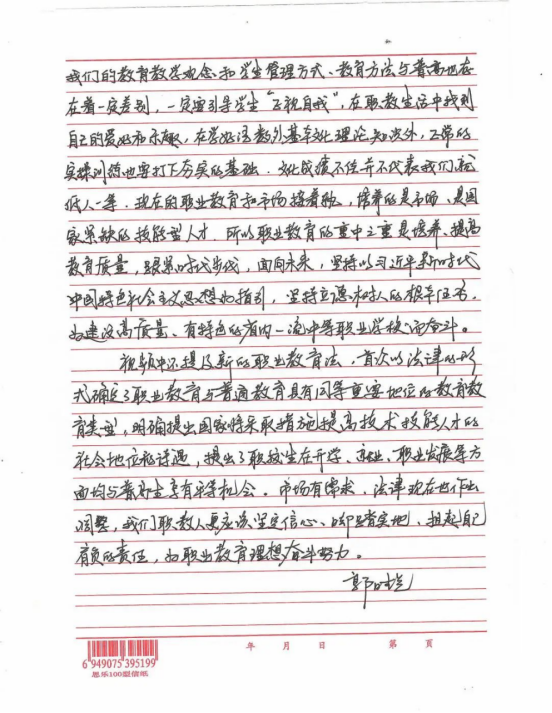 我们的教育教学观念和学生管理方式、教育方法与普高也存
在着一定差别，一定要引导学生“正视自我”，在职教生活中找到
自己的爱好和乐趣，在学好语数外基本文化理论知识外，正常的
实操训练也要打下夯实的基础。文化成绩不佳并不代表我们就
低人一等。现在的职业教育和市场接着轨，培养的是市场、是国
家紧缺的技能型人才。所以职业教育的重中之重是培养、提高
教育质量，跟紧时代步伐，面向未来，坚持以习近平新时代
中国特色社会主义思想为指引，坚持立德树人的根本任务，
为建设高质量、有特色的省内一流中等职业学校而奋斗。
视频中还提及新的职业教育法，首次以法律的形
式确定了职业教育与普通教育具有同等重要地位的教育教
育类型，明确提出国家将采取措施提高技术技能人才的
社会地位和待遇，提出了职校生在升学、就业、职业发展等方
面均与普高生享有平等机会。市场有需求，法律现在也作出
调整，我们职教人更应该坚定信心、脚踏实地、担起自己
肩负的责任，为职业教育理想奋斗努力。
年 月 日 第 页
6 949075 395199
思乐100型信纸